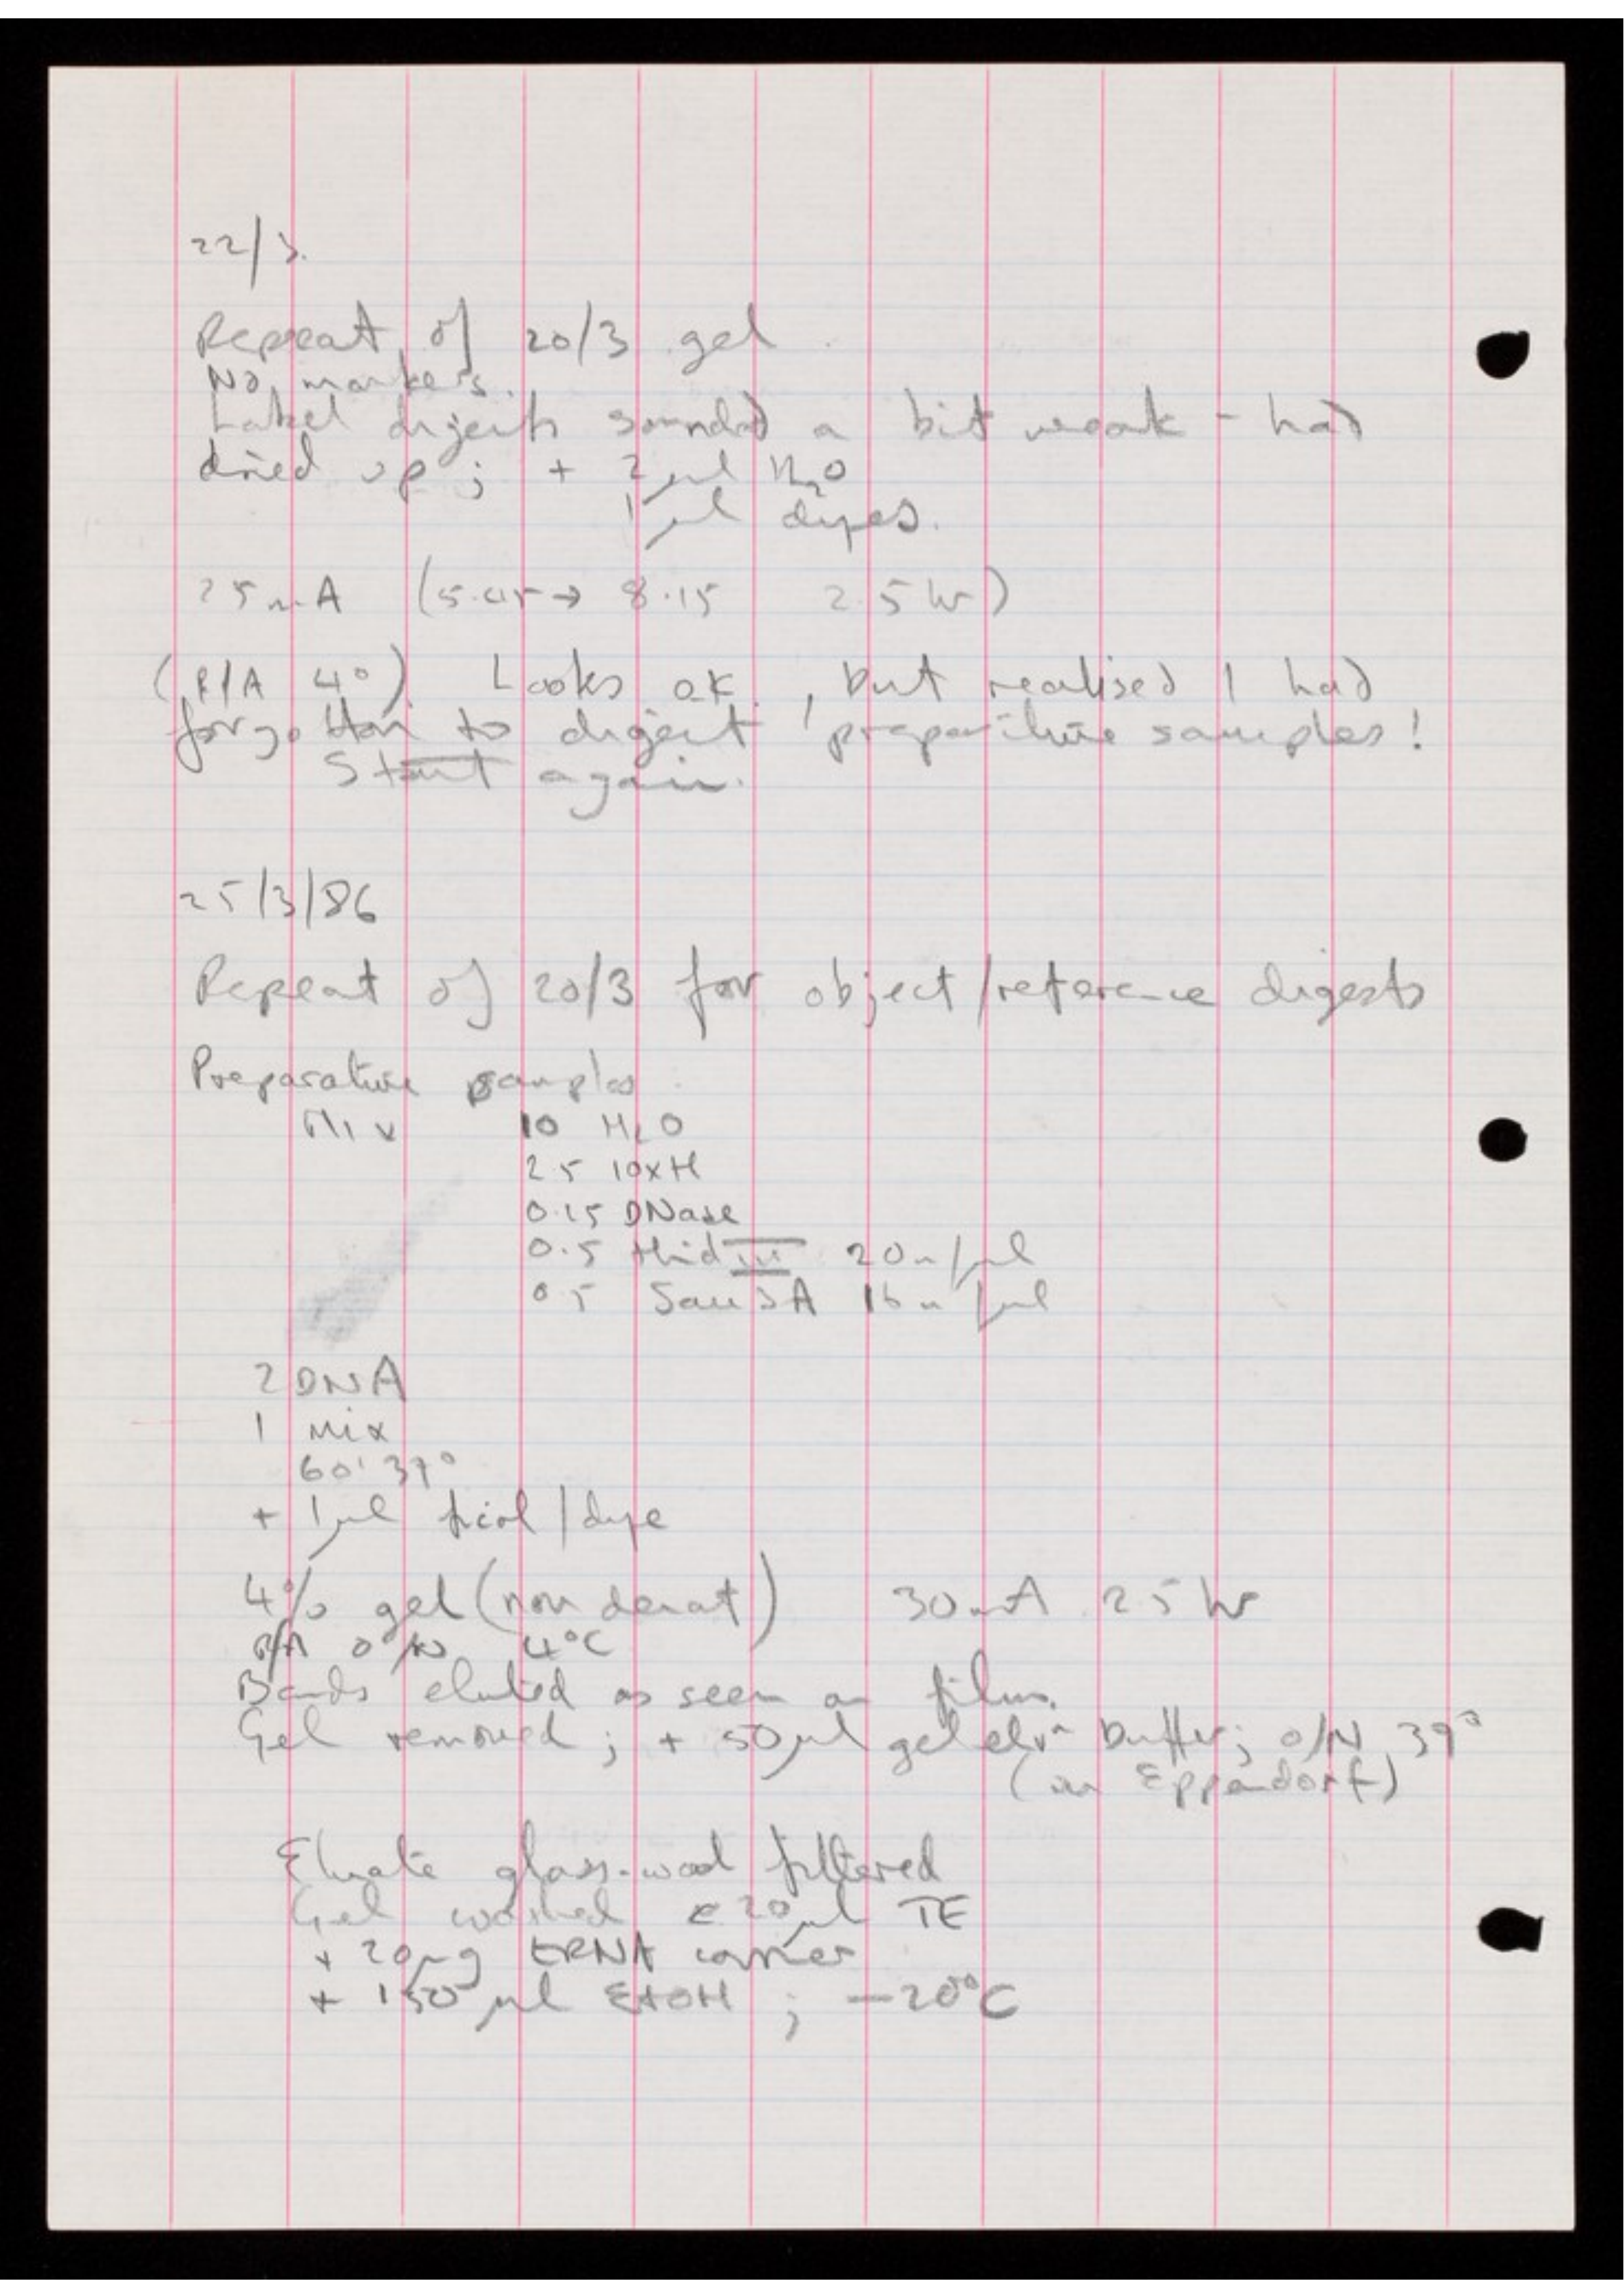 22/3.
Repeat of 20/3 gel.
No markers.
Label digests sounded a bit weak - had
dried up ; + 2 µl H2O
1 µl dyes.
25mA (5.45 → 8.15 2.5 hr)
(R/A 4°) Looks OK, but realised I had
forgotten to digest preparative samples!
Start again.
25/3/86
Repeat of 20/3 for object/reference digests
Preparative samples
Mix 10 H2O
2.5 10xH
0.15 DNase
0.5 HindIII 20u/µl
0.5 Sau3A 16u/µl
2 DNA
1 mix
60' 37°
+ 1µl ficol/dye
4% gel (non denat) 30mA 2.5 hr
R/A O/N 4°C
Bands eluted as seen on film.
Gel removed ; + 50µl gel elun buffer; O/N 39°
(in Eppendorf)
Eluate glass-wool filtered
Gel washed c 20µl TE
+ 20µg tRNA carrier
+ 150 µl EtOH ; -20°C